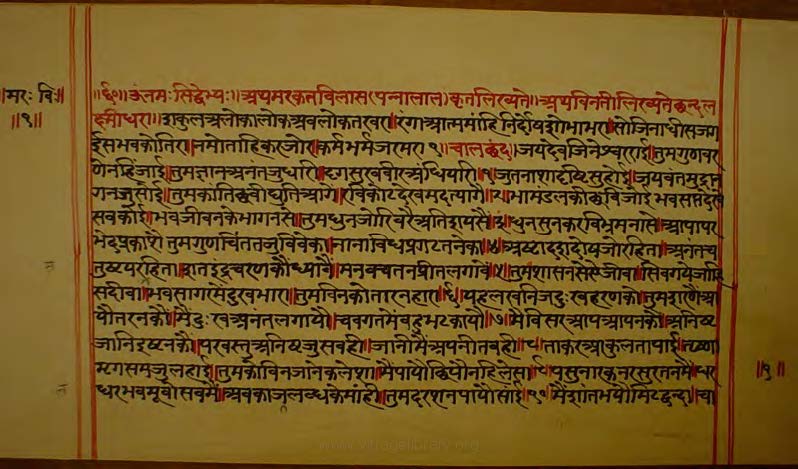 ।मरः विः॥
॥१॥
॥६०॥ उंनमःसिद्धेभ्यः॥अथमरकतविलास(पन्नालाल)कृतलिख्यते॥अथविनतीलिख्यतेछन्दल
क्ष्मीधरा॥ज्ञाकुलअलोकालोकअवलोकतखरा॥रगाआत्ममांहिनिर्दोषशोभाभरा॥सोजिनाधीसजग
ईसभवकोतिरा॥नमोताहिकरजोर॥कर्मभर्मजरमरा१॥चालछंद॥जयदेवजिनेश्वरराई॥तुमगुणवर
णेनहिंजाई॥तुमज्ञानअनंतजुधारी॥दृगसुखवीरअंधियारि॥१॥जुतनाशदृष्टिसुहोई॥जयवंतमुद्र
गनजुसोई॥तुमकांतिछवीद्युतिआगै॥रविकोटदेखमदत्यागै॥२॥भामंडलकीछविजोई भवसप्तदेखे
सबकोई॥भवजीवनकेभागनसै॥तुमधुनजोरिवरैअतिज्ञायसै॥३॥धुनसुनकरविभ्रमनासे॥आपापर
भेदप्रकाशै॥तुमगुणचिंततजुविवेका॥नानाविधप्रगटतनेका॥४॥अष्टादशदोषजोरहिता॥अनंतच
तुष्टयसहिता॥शतइंद्रचरणकौध्यावै॥मनवचतनप्रीतलगावै॥५॥तुमशासनसेसेजीवा॥सिवगयेजांहि
सदीवा॥भवसागरमेंदुखभारा॥तुमविनकोतारनहारा॥६॥यहलखनिजदुःखहरणको॥तुमशरणैंआ
योतरनकौ॥मैंदुःखअनंतलगायौ॥चवगतमेंबहुभटकायौ॥७॥मैविसरआपआपनकौ॥अनिष्ट
जानिइष्टनकौ॥परवस्तुअनिष्टजुसबही॥जानीमैअपनीतबही॥८॥ताकरआकुलतापाई॥तृष्णा
मृगसमजुलहाई॥तुमकोविनजानेकलेशा॥मैपायोछिपौनहिलेसा॥९॥पसुनारकनरसुरतनमें॥धर
धरभवमूवोसबमें॥अबकाजलब्धकेमांही॥तुमदरशनपायौसांई॥१०॥मैंशांतभयौमिटद्वन्द॥चा
॥१॥
www.vitragelibrary.org